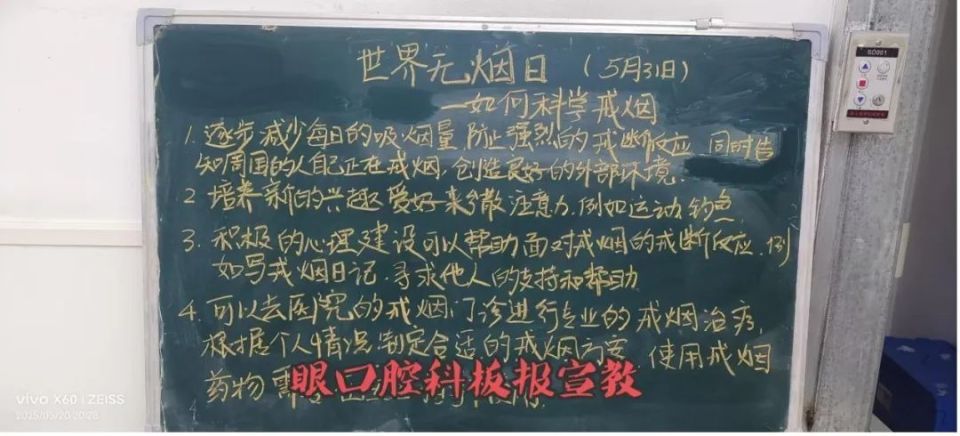 世界无烟日（5月31日）
—如何科学戒烟
1. 逐步减少每日的吸烟量,防止强烈的戒断反应,同时告
知周围的人自己正在戒烟,创造良好的外部环境.
2 培养新的兴趣爱好来分散注意力.例如运动.钓鱼
3. 积极的心理建设可以帮助面对戒烟的戒断反应.例
如写戒烟日记.寻求他人的支持和帮助
4. 可以去医院的戒烟门诊进行专业的戒烟治疗,
根据个人情况制定合适的戒烟方案 使用戒烟
药物需
眼口腔科板报宣教
SD001
vivo X60 | ZEISS
2025/05/20 20:28